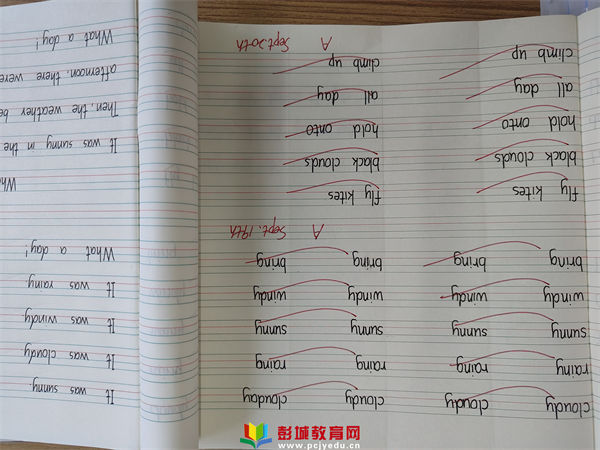 cloudy cloudy cloudy clouday
rainy rainy rainy rainy
sunny sunny sunny sunny
windy windy windy windy
bring bring bring bring
A Sept.19th
fly kites fly kites
black clouds black clouds
hold onto hold onto
all day all day
climb up climb up
A Sept.20th
It was sunny.
It was cloudy
It was windy
It was rainy
What a day!
Wha
It was sunny in the
Then, the weather be
afternoon, there were
What a day!
彭城教育网
www.pcjyedu.cn